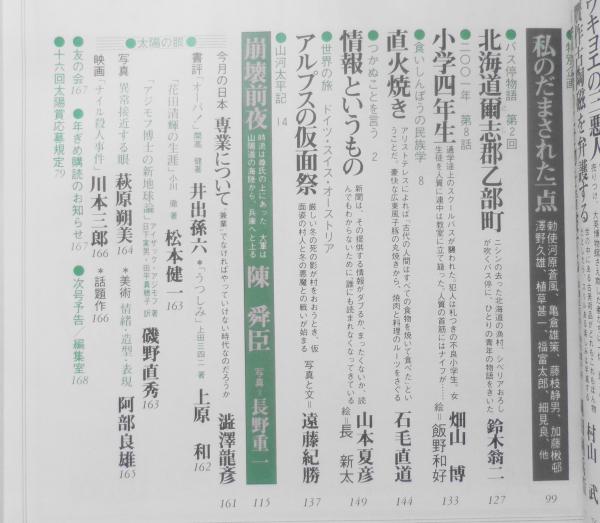 私のだまされた一点
勅使河原蒼風、亀倉雄策、藤枝静男、加藤楸邨
澤野久雄、植草甚一、福富太郎、細見良、他
99
●バス停物語 第2回
北海道爾志郡乙部町
ニシンの去った北海道の漁村、シベリアおろし
が吹くバス停に、ひとりの青年の物語をきいた
鈴木翁二
127
●二〇〇一年 第8話
小学四年生
通学途上のスクールバスが襲われた。犯人は札つきの不良小学生。女
生徒を人質に連中は教室に立て籠った。人質の首筋にはナイフが……
畑山 博
絵＝飯野和好
133
●食いしんぼうの民族学 8
直火焼き
アリストテレスによれば「古代の人間はすべての食物を焼いて食べた」とい
うことだ。豪快な広東風子豚の丸焼きから、焼肉と料理のルーツをさぐる
石毛直道
144
●つかぬことを言う 2
情報というもの
新聞は、その提供する情報がダブるか、まったくないか、読
んでもわからないために「誰にも読まれなくなってきている
山本夏彦
絵＝長 新太
149
●世界の旅 ドイツ・スイス・オーストリア
アルプスの仮面祭
厳しい冬の死の影が村をおおうとき、仮
面姿の村人と冬の悪魔との戦いが始まる
写真と文＝遠藤紀勝
137
●山河太平記 14
崩壊前夜
時流は尊氏の上にあった 大軍は
山陽道の海陸から、兵庫へとよる
陳 舜臣
写真＝長野重一
115
今月の日本 専業について
“兼業”でなければやっていけない時代なのだろうか
澁澤龍彦
161
●太陽の眼●
書評『オーパ!』開高 健著 井出孫六 *『うつしみ』上田三四二著 上原 和 162
『花田清輝の生涯』小川 徹著 松本健一 163
『アジモフ博士の新地球論』アイザック・アジモフ著
日下実男・田平真穂子訳
磯野直秀 163
写真 異常接近する眼 萩原朔美 164 *美術 情緒・造型・表現 阿部良雄 165
映画『ナイル殺人事件』川本三郎 166 *話題作 166
●友の会 167 ●年ぎめ購読のお知らせ 167 ●次号予告/編集室 168
●十六回太陽賞応募規定 79